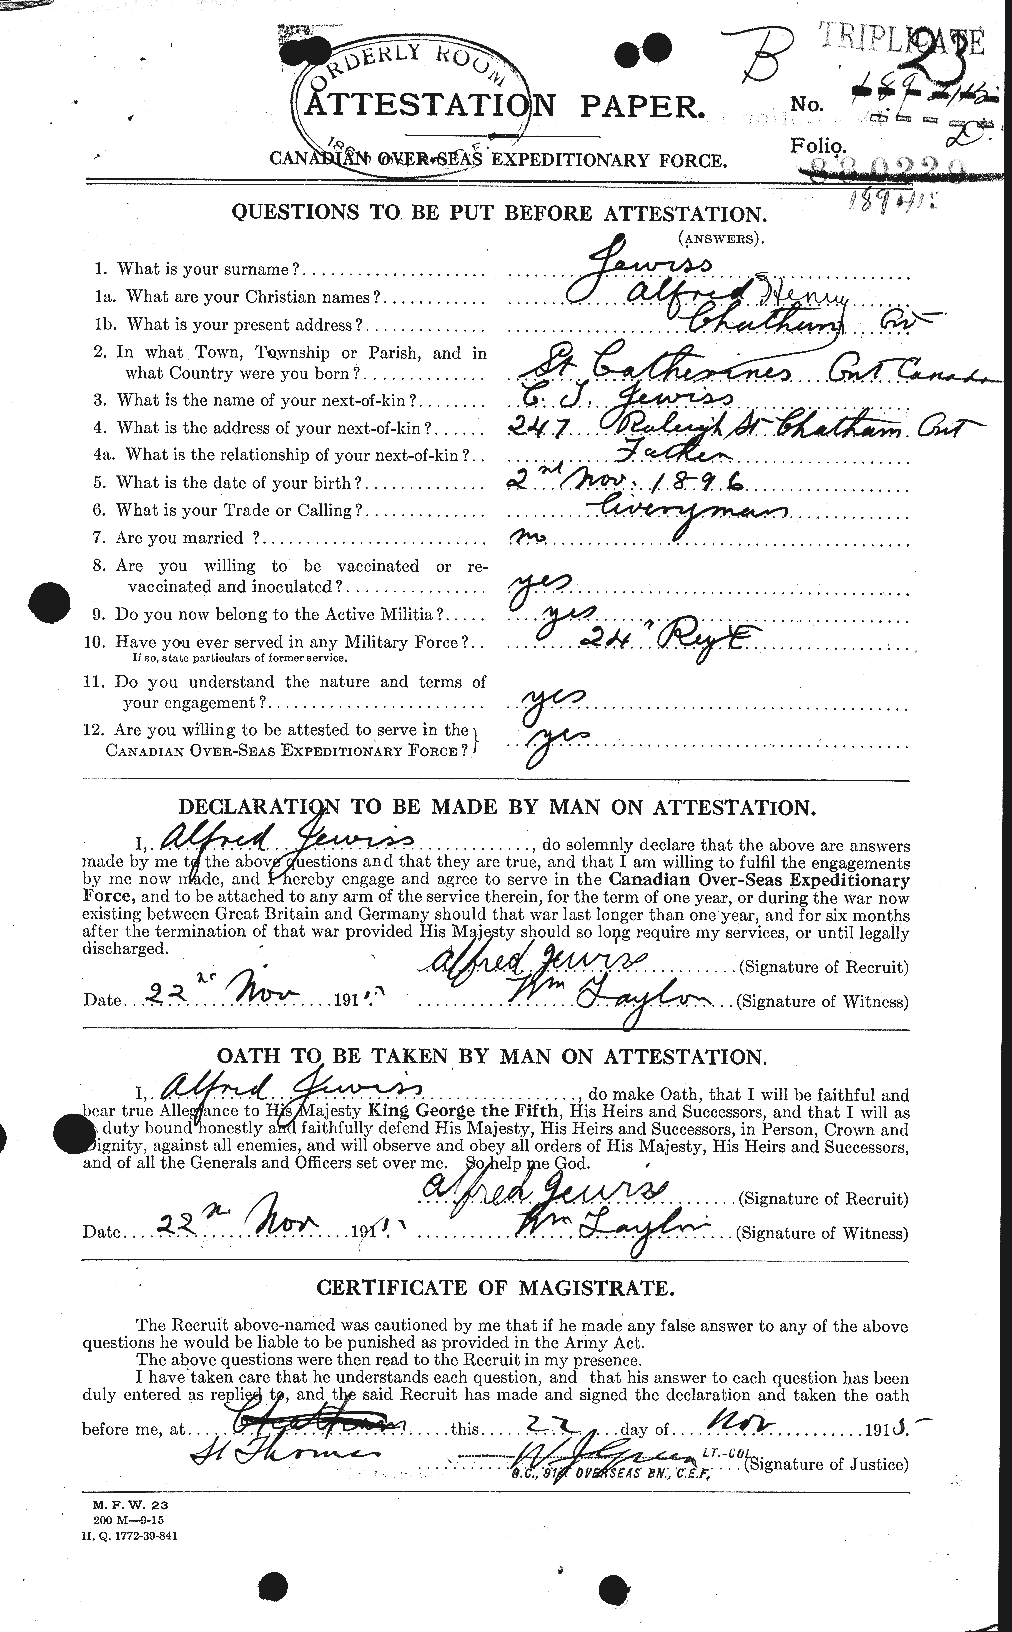 TRIPLICATE
B
23
ORDERLY ROOM
ATTESTATION PAPER.
No.
Folio.
CANADIAN OVER-SEAS EXPEDITIONARY FORCE.
QUESTIONS TO BE PUT BEFORE ATTESTATION.
(ANSWERS).
1. What is your surname? Jewiss
1a. What are your Christian names? Alfred Henry
1b. What is your present address? Chatham Ont
2. In what Town, Township or Parish, and in
what Country were you born? St Catherines Ont Canada
3. What is the name of your next-of-kin? C. J. Jewiss
4. What is the address of your next-of-kin? 247 Raleigh St Chatham Ont
4a. What is the relationship of your next-of-kin? Father
5. What is the date of your birth? 2nd Nov. 1896
6. What is your Trade or Calling? Liveryman
7. Are you married?
8. Are you willing to be vaccinated or re-
vaccinated and inoculated? yes
9. Do you now belong to the Active Militia? yes
10. Have you ever served in any Military Force? 24" Regt
If so, state particulars of former service.
11. Do you understand the nature and terms of
your engagement? yes
12. Are you willing to be attested to serve in the
CANADIAN OVER-SEAS EXPEDITIONARY FORCE? yes
DECLARATION TO BE MADE BY MAN ON ATTESTATION.
I, Alfred Jewiss, do solemnly declare that the above are answers
made by me to the above questions and that they are true, and that I am willing to fulfil the engagements
by me now made, and I hereby engage and agree to serve in the Canadian Over-Seas Expeditionary
Force, and to be attached to any arm of the service therein, for the term of one year, or during the war now
existing between Great Britain and Germany should that war last longer than one year, and for six months
after the termination of that war provided His Majesty should so long require my services, or until legally
discharged.
Alfred Jewiss (Signature of Recruit)
Date 22 Nov 191 Wm Taylor (Signature of Witness)
OATH TO BE TAKEN BY MAN ON ATTESTATION.
I, Alfred Jewiss, do make Oath, that I will be faithful and
bear true Allegiance to His Majesty King George the Fifth, His Heirs and Successors, and that I will as
duty bound honestly and faithfully defend His Majesty, His Heirs and Successors, in Person, Crown and
Dignity, against all enemies, and will observe and obey all orders of His Majesty, His Heirs and Successors,
and of all the Generals and Officers set over me. So help me God.
Alfred Jewiss (Signature of Recruit)
Date 22 Nov 191 Wm Taylor (Signature of Witness)
CERTIFICATE OF MAGISTRATE.
The Recruit above-named was cautioned by me that if he made any false answer to any of the above
questions he would be liable to be punished as provided in the Army Act.
The above questions were then read to the Recruit in my presence.
I have taken care that he understands each question, and that his answer to each question has been
duly entered as replied to, and the said Recruit has made and signed the declaration and taken the oath
before me, at Chatham this 22 day of Nov 1915.
St Thomas W J Green LT.-COL. (Signature of Justice)
O.C., 91st OVERSEAS BN., C.E.F.
M. F. W. 23
200 M—9-15
H. Q. 1772-39-841